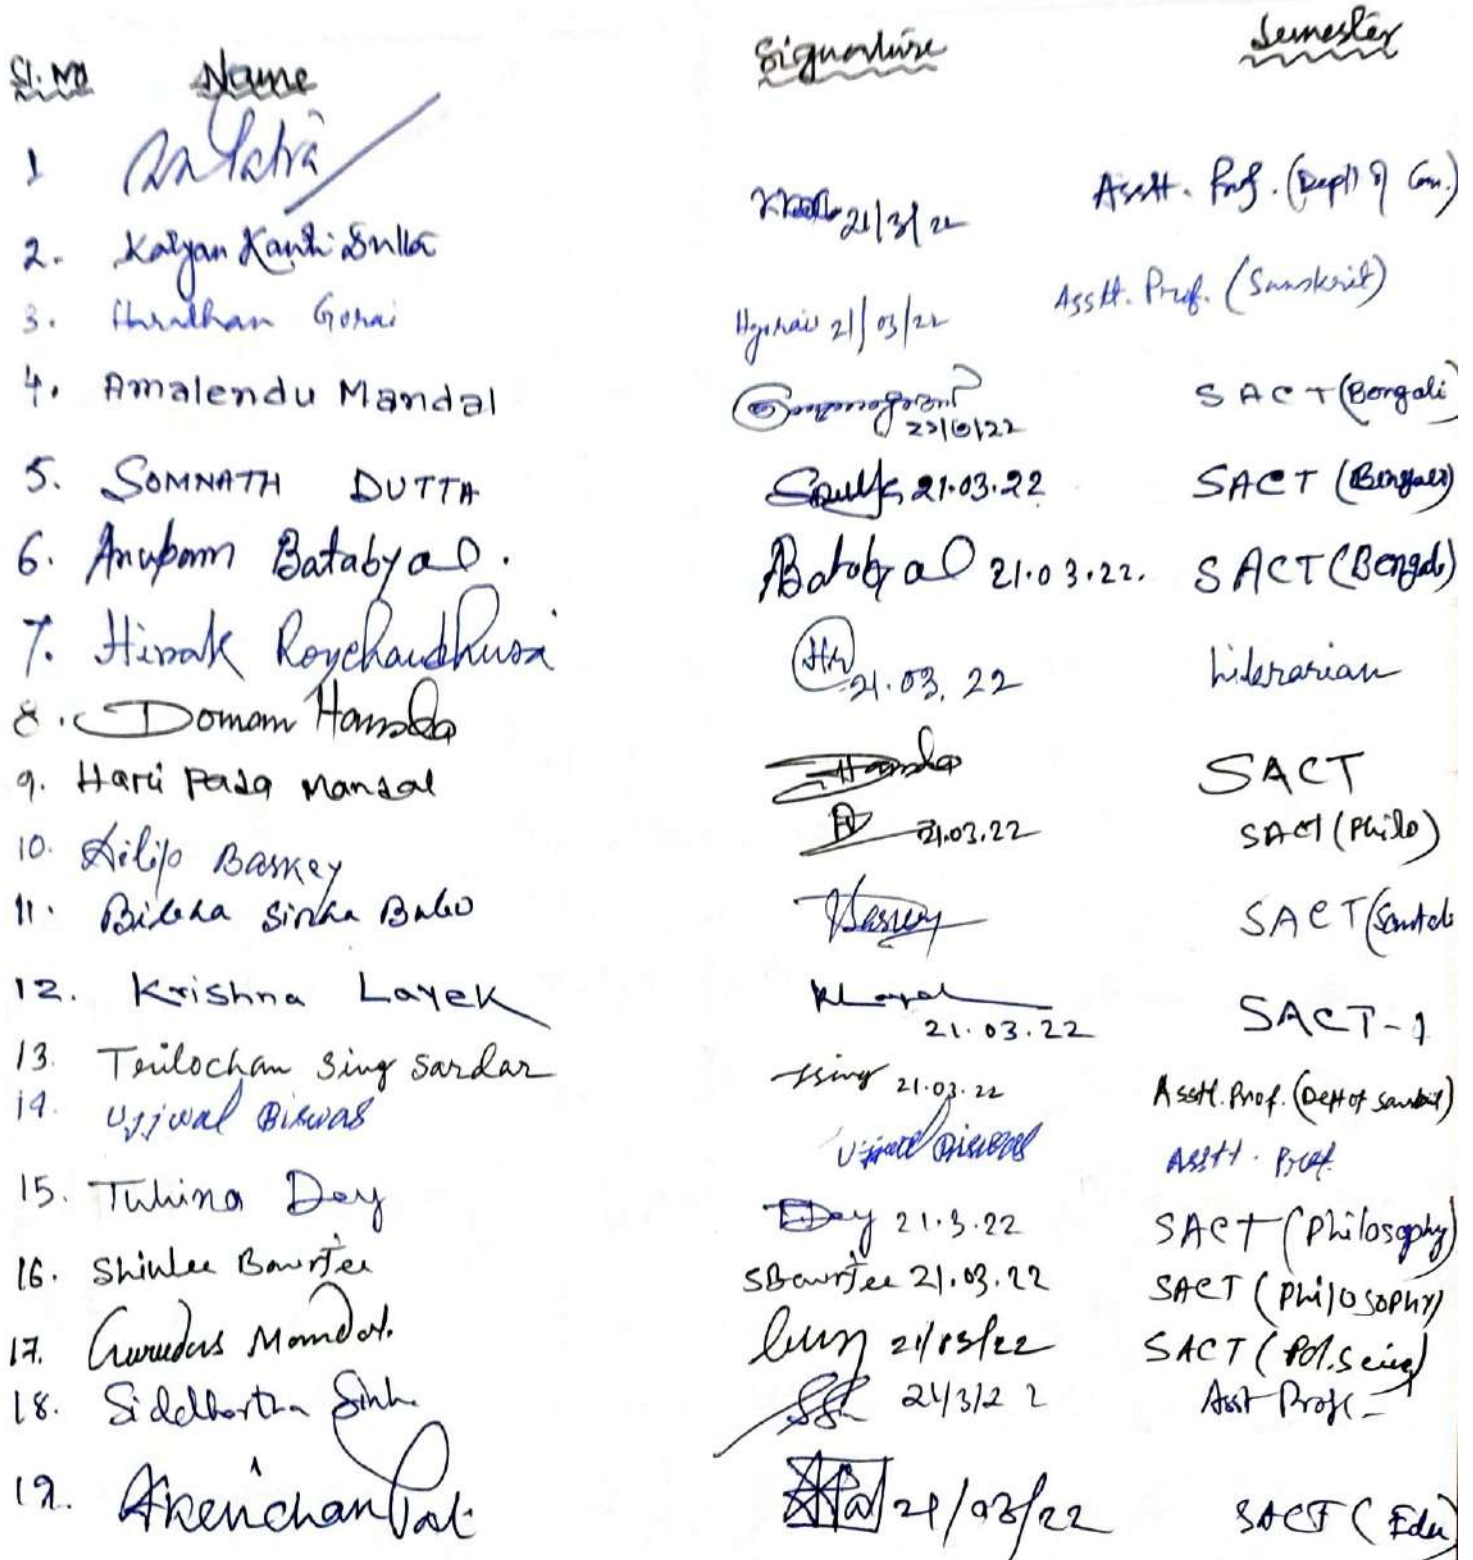 Sl. No Name Signature Semester
1
21/3/22 Asstt. Prof. (Dept of Com.)
2. Kalyan Kanti Dutta
3. Haradhan Gorai HGorai 21/03/22 Asstt. Prof. (Sanskrit)
4. Amalendu Mandal SACT (Bengali)
5. SOMNATH DUTTA 21.03.22 SACT (Bengali)
6. Anupam Batabyal. Batabyal 21.03.22. SACT (Bengali)
7. Hirak Roychaudhuri HR 21.03.22 Librarian
8. Doman Hansda Hansda SACT
9. Hari Pada Mandal 21.03.22 SACT (Philo)
10. Dilip Baskey Baskey SACT (Santali
11. Sinha Babu
12. Krishna Layek 21.03.22 SACT-1
13. Trilochan Sing Sardar TSing 21.03.22 Asstt. Prof. (Dept of Sanskrit)
14. Ujjwal Biswas Ujjwal Biswas Asstt. Prof.
15. Tuhina Dey TDey 21.3.22 SACT (Philosophy)
16. Shiulee Bowrjee SBowrjee 21.03.22 SACT (Philosophy)
17. Gurudas Mondal. 21/03/22 SACT (Pol. Science)
18. Siddhartha Sinha 21/3/22 Asst Prof.
19. Akinchan Pal APal 21/03/22 SACT (Edu